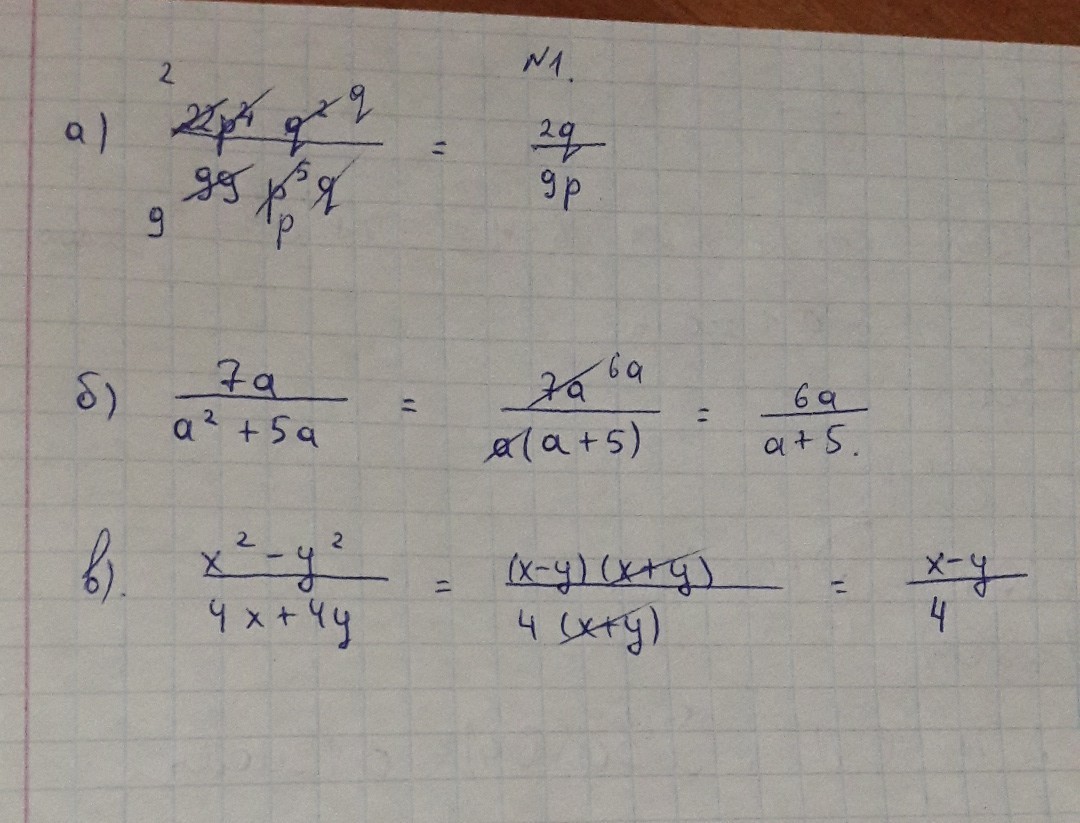 N1.
а) 2 22p⁴ q² q / 99 p⁵ q 9 p = 2q / 9p
б) 7a / a² + 5a = 7a 6a / a(a+5) = 6a / a+5.
в). x² - y² / 4x + 4y = (x-y)(x+y) / 4(x+y) = x-y / 4